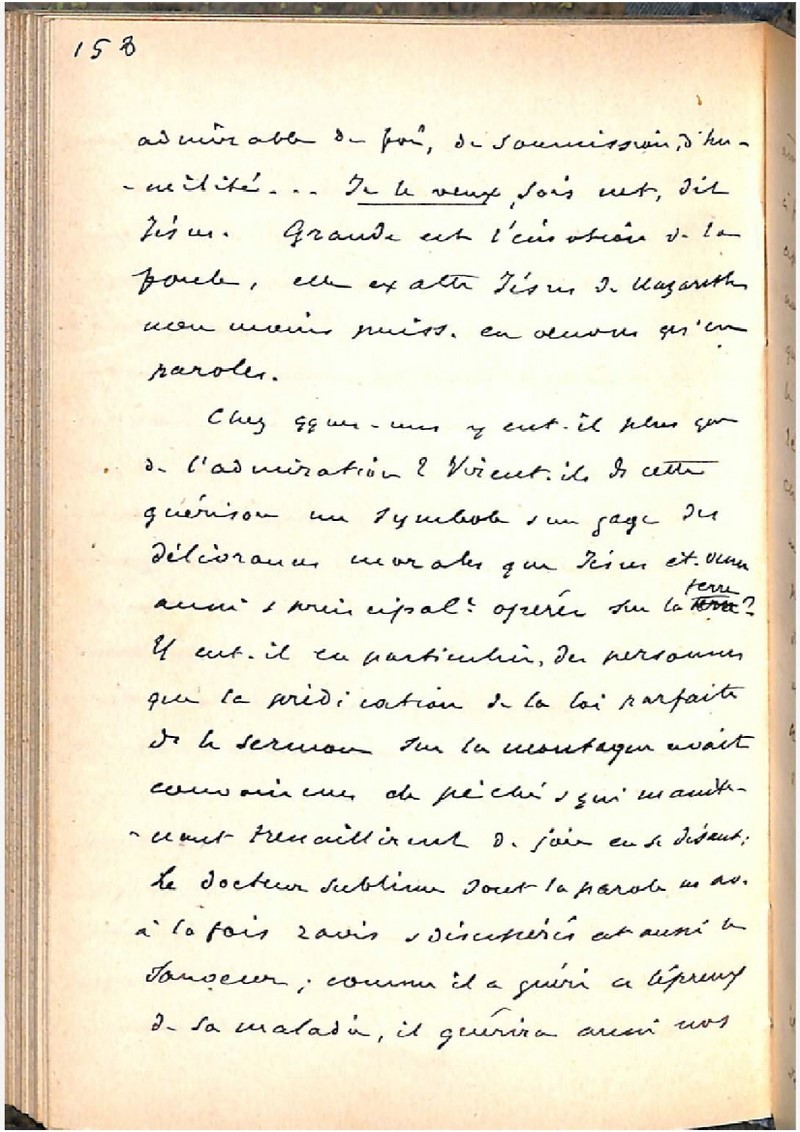 158
admirable de foi, de soumission, d'hu-
-milité... Je le veux, sois net, dit
Jésus. Grande est l'émotion de la
foule, elle exalte Jésus de Nazareth
non moins puiss. en œuvres qu'en
paroles.
Chez qques-uns y eut-il plus que
de l'admiration? Virent-ils ds cette
guérison un symbole & un gage des
délivrances morales que Jésus et. venu
aussi & principalt opérer sur la terre?
Y eut-il en particulier, des personnes
que la prédication de la loi parfaite
ds le sermon sur la montagne avait
convaincues de péché & qui mainte-
-nant tressaillirent de joie en se disant:
Le docteur sublime dont la parole ns av.
à la fois ravis & désespérés est aussi le
Sauveur; comme il a guéri ce lépreux
de sa maladie, il guérira aussi nos